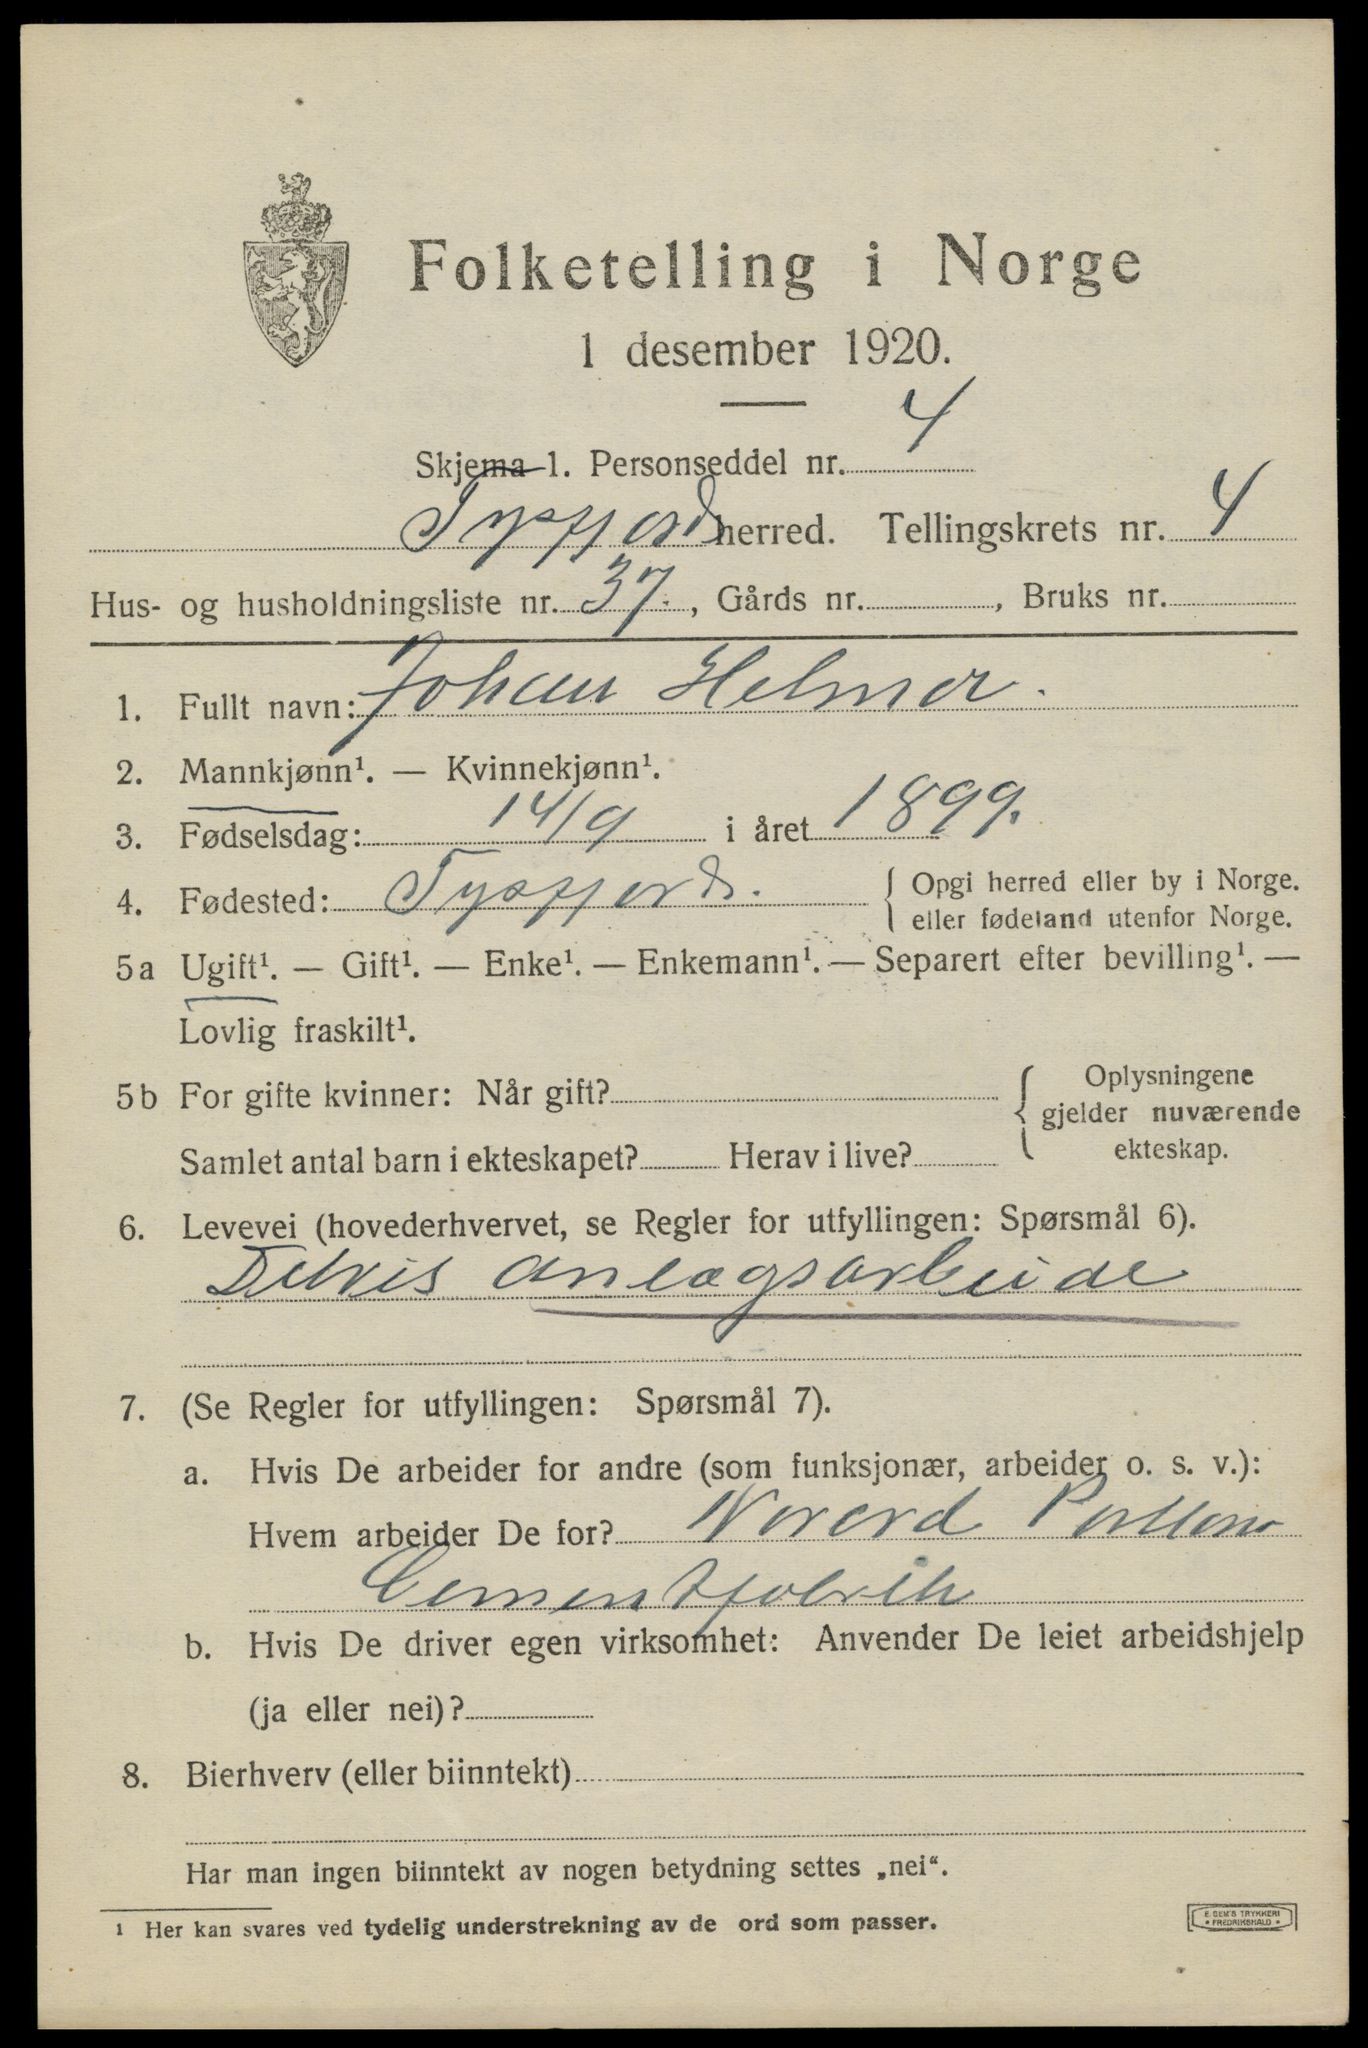 Folketelling i Norge
1 desember 1920.
Skjema 1. Personseddel nr. 4
Tysfjord herred. Tellingskrets nr. 4
Hus- og husholdningsliste nr. 37. , Gårds nr. , Bruks nr.
1. Fullt navn: Johan Helmer.
2. Mannkjønn¹. — Kvinnekjønn¹.
3. Fødselsdag: 14/9 i året 1899.
4. Fødested: Tysfjord. { Opgi herred eller by i Norge.
eller fødeland utenfor Norge.
5a Ugift¹. — Gift¹. — Enke¹. — Enkemann¹. — Separert efter bevilling¹. —
Lovlig fraskilt¹.
5b For gifte kvinner: Når gift? { Oplysningene
gjelder nuværende
Samlet antal barn i ekteskapet? Herav i live? ekteskap.
6. Levevei (hovederhvervet, se Regler for utfyllingen: Spørsmål 6).
Delvis anlægsarbeide
7. (Se Regler for utfyllingen: Spørsmål 7).
a. Hvis De arbeider for andre (som funksjonær, arbeider o. s. v.):
Hvem arbeider De for?
Cementfabrik
b. Hvis De driver egen virksomhet: Anvender De leiet arbeidshjelp
(ja eller nei)?
8. Bierhverv (eller biinntekt)
Har man ingen biinntekt av nogen betydning settes „nei“.
¹ Her kan svares ved tydelig understrekning av de ord som passer.
E. SEM'S TRYKKERI
• FREDRIKSHALD •